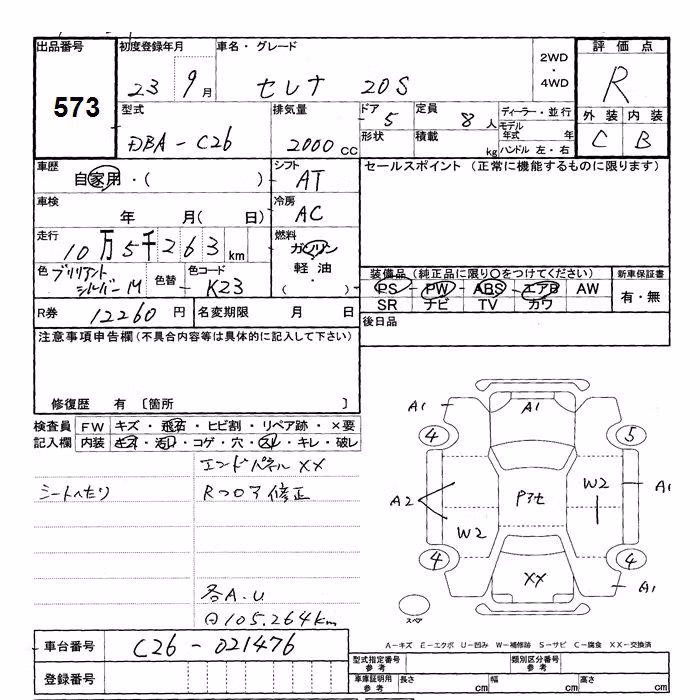 出品番号 初度登録年月 車名・グレード 2WD ・ 4WD 評価点
573 23 9月 セレナ 20S R
型式 排気量 ドア 5 定員 8人 ディーラー・並行 外装 内装
DBA-C26 2000cc 形状 積載 kg モデル年式 年 C B
ハンドル 左・右
車歴 自家用・( ) シフト AT セールスポイント (正常に機能するものに限ります)
車検 年 月( 日) 冷房 AC
走行 10万5千263km 燃料 ガソリン 軽油 ・ ( )
色 ブリリアントシルバーM 色替 色コード K23
装備品(純正品に限り○をつけてください) 新車保証書
PS - PW - ABS - エアB AW 有・無
SR ナビ TV カワ
R券 12260円 名変期限 月 日 後日品
注意事項申告欄(不具合内容等は具体的に記入して下さい)
修復歴 有 〔箇所 〕
検査員 FW キズ・飛石・ヒビ割・リペア跡・×要
記入欄 内装 キズ・汚れ・コゲ・穴・スレ・キレ・破レ
エンドパネルXX
シートへたり Rフロア修正
各A.U
105.264km
A1 A1
4 5
A2 P3セ W2 A1
W2
4 4
XX A1
スペア
A-キズ E-エクボ U-凹み W-補修跡 S-サビ C-腐食 XX-交換済
車台番号 C26-021476
登録番号
型式指定番号 参考 類別区分番号 参考
車庫証明用 参考 長さ cm 幅 cm 高さ cm